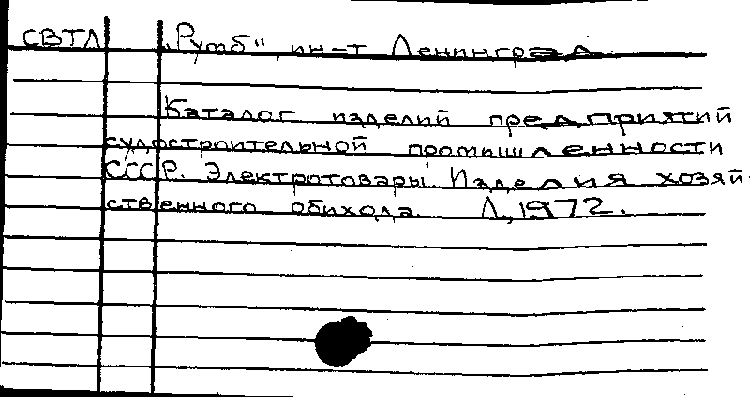 СВТЛ „Румб“, ин-т Ленинград
Каталог изделий предприятий
судостроительной промышленности
СССР. Электротовары. Изделия хозяй-
ственного обихода. Л, 1972.